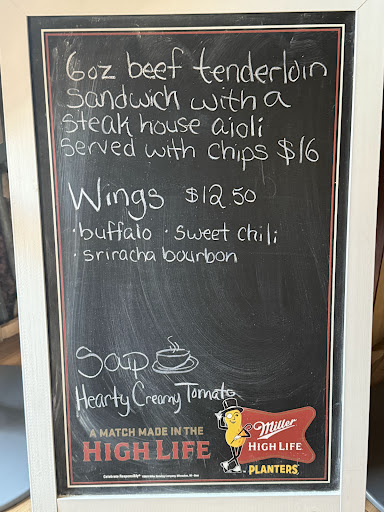 6oz beef tenderloin
sandwich with a
steak house aioli
served with chips $16
Wings $12.50
· buffalo · sweet chili
· sriracha bourbon
Soup
Hearty Creamy Tomato
A MATCH MADE IN THE
HIGH LIFE
Miller
HIGH LIFE
PLANTERS
Celebrate Responsibly